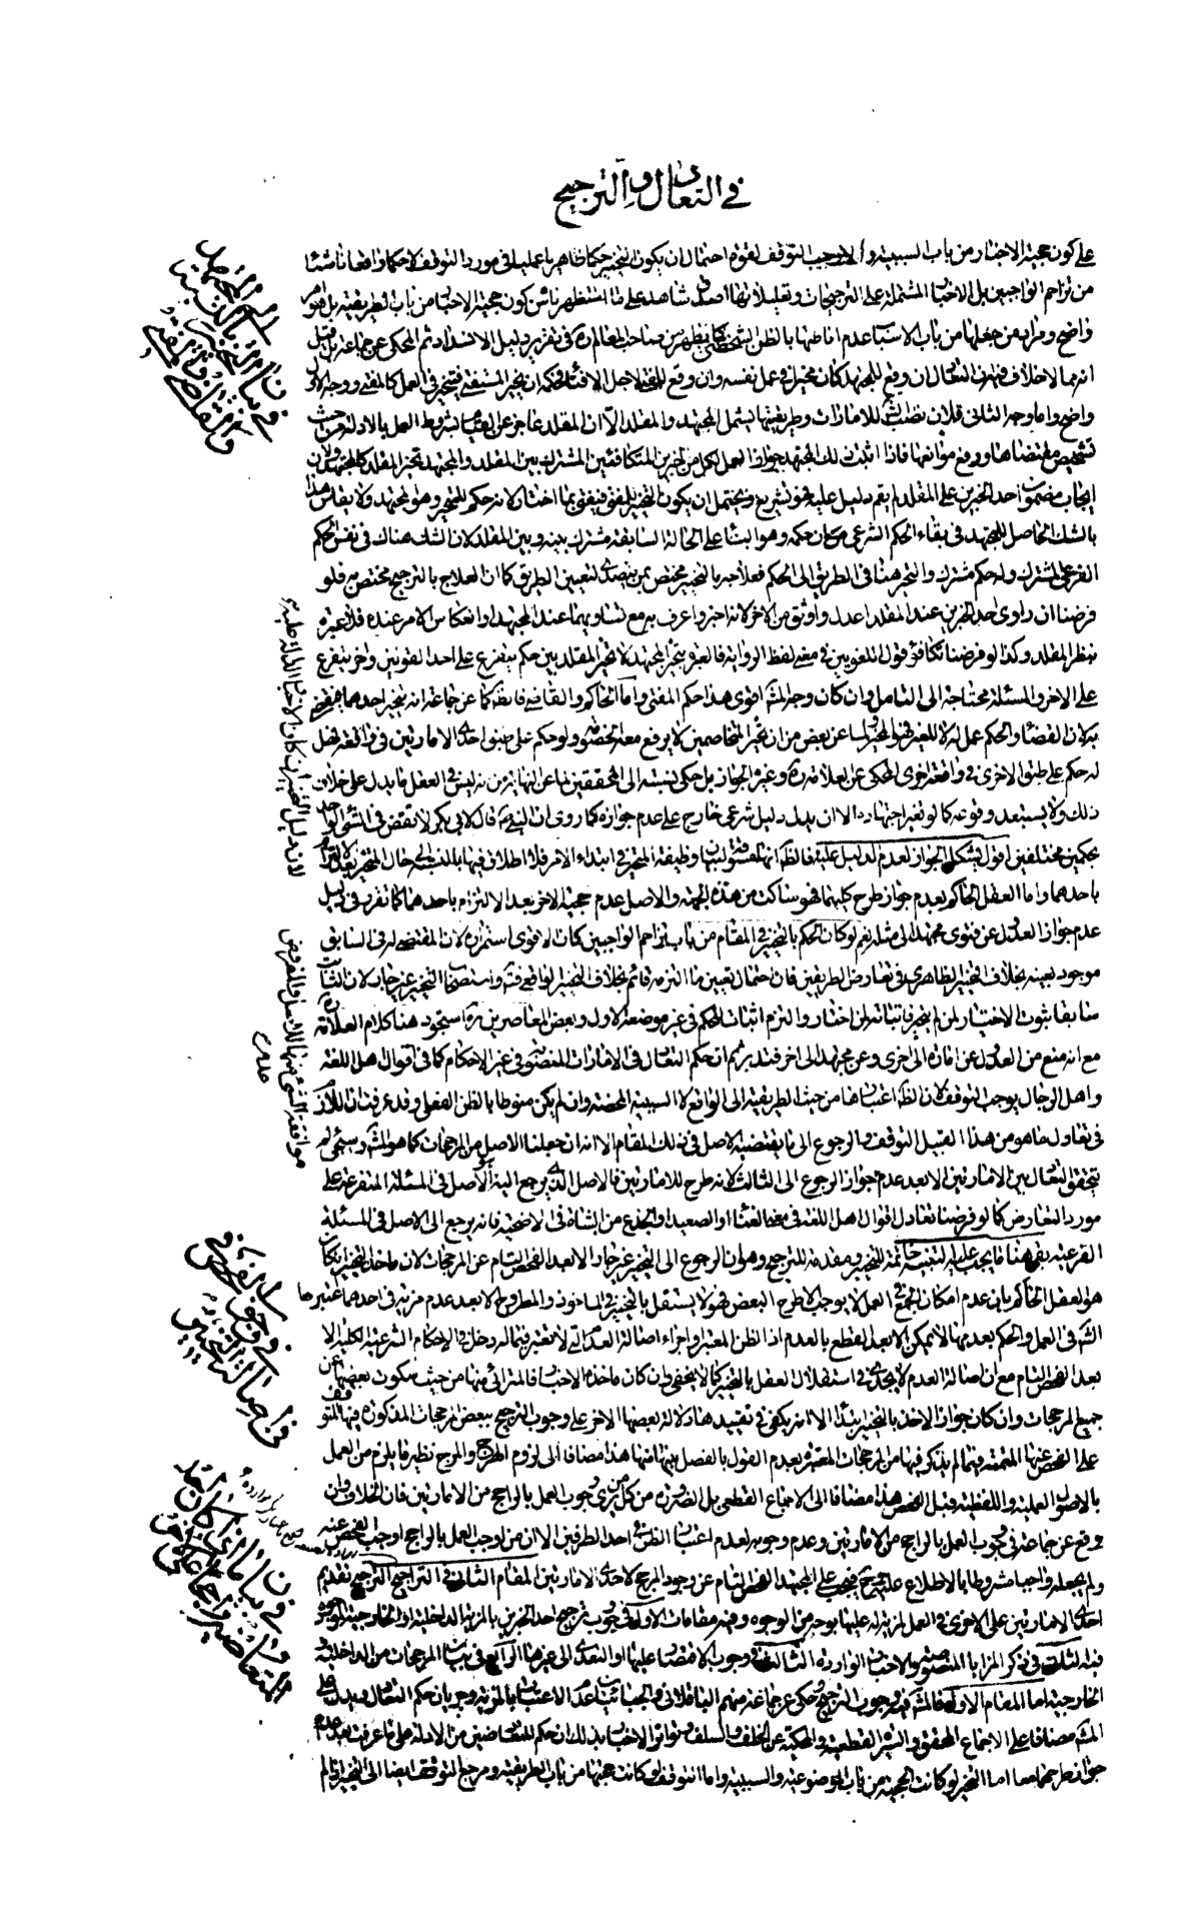 في التعادل والتراجيح
على كون حجية الاخبار من باب السببية والا وجب التوقف لقوة احتمال ان يكون التخيير حكما ظاهريا عمليا في مورد التوقف لا حكما واقعيا ناشئا
من تزاحم الواجبين بل الاخبار المشتملة على الترجيحات وتعليلاتها اصدق شاهد على ما استظهرناه من كون حجية الاخبار من باب الطريقية بل هو امر
واضح ومراد من جعلها من باب الاسباب عدم اناطتها بالظن الشخصي كما يظهر من صاحب المعالم ره في تقرير دليل الانسداد ثم المحكي عن جماعة بل قيل
انه مما لا خلاف فيه ان التعادل ان وقع للمجتهد كان مخيرا في عمل نفسه وان وقع للمفتي لاجل الافتاء فحكمه ان يخير المستفتي فيتخير في العمل كالمفتي ووجه الاول
واضح واما وجه الثاني فلان نصب الشارع للامارات وطريقيتها يشمل المجتهد والمقلد الا ان المقلد عاجز عن القيام بشروط العمل بالادلة من حيث
تشخيص مقتضاها ورفع موانعها فاذا اثبت ذلك المجتهد جواز العمل لكل من الخبرين المتكافئين المشترك بين المقلد والمجتهد تخير المقلد كالمجتهد ولان
ايجاب مضمون احد الخبرين على المقلد لم يقم دليل عليه فهو تشريع ويحتمل ان يكون التخيير للمفتي فيفتي بما اختار لانه حكم للمتحير وهو المجتهد ولا يقاس هذا
بالشك الحاصل للمجتهد في بقاء الحكم الشرعي مع ان حكمه وهو البناء على الحالة السابقة مشترك بينه وبين المقلد لان الشك هناك في نفس الحكم
الفرعي المشترك وله حكم مشترك والتحير هنا في الطريق الى الحكم فعلاجه بالتخيير مختص بمن يتصدى لتعيين الطريق كما ان العلاج بالترجيح مختص به فلو
فرضنا ان راوي احد الخبرين عند المقلد اعدل واوثق من الاخر لانه اخبر واعرف به مع تساويهما عند المجتهد او انعكاس الامر عنده فلا عبرة
بنظر المقلد وكذا لو فرضنا تكافؤ قول اللغويين في معنى لفظ الرواية فالعبرة بتخير المجتهد لا تخير المقلد بين حكم يتفرع على احد القولين واخر يتفرع
على الاخر والمسئلة محتاجة الى التأمل وان كان وجه المشهور اقوى هذا حكم المفتي واما الحاكم والقاضي فالظاهر كما عن جماعة انه يتخير احدهما فيقضي
به لان القضاء والحكم عمل له لا للغير فهو المخير ولما عن بعض من ان تخير المتخاصمين لا يرفع معه الخصومة ولو حكم على طبق احدى الامارتين في واقعة فهل
له حكم على طبق الاخرى في واقعة اخرى المحكي عن العلامة ره وغيره الجواز بل حكي نسبته الى المحققين لما عن النهاية من انه ليس في العقل ما يدل على خلاف
ذلك ولا يستبعد وقوعه كما لو تغير اجتهاده الا ان يدل دليل شرعي خارج على عدم جوازه كما روي ان النبي ص قال لابي بكر لا تقض في الشيء الواحد
بحكمين مختلفين اقول يشكل الجواز لعدم الدليل عليه فالظاهر انها مسوقة لبيان وظيفة المتحير في ابتداء الامر فلا اطلاق فيها بالنسبة الى حال المتحير بعد الالتزام
باحدهما واما العقل الحاكم بعدم جواز طرح كليهما فهو ساكت من هذه الجهة والاصل عدم حجية الاخر بعد الالتزام باحدهما كما تقرر في دليل
عدم جواز العدول عن فتوى مجتهد الى مثله نعم لو كان الحكم بالتخيير في المقام من باب تزاحم الواجبين كان الاقوى استمراره لان المقتضي له في السابق
موجود بعينه بخلاف التخيير الظاهري في تعارض الطريقين فان احتمال تعيين ما التزمه قائم بخلاف التخيير الواقعي فتأمل واستصحاب التخيير غير جار لان الثابت
سابقا ثبوت الاختيار لمن لم يختر فاثباته لمن اختار والتزم اثبات للحكم في غير موضعه الاول وبعض المعاصرين ره استجود هنا كلام العلامة ره
مع انه منع من العدول عن امارة الى اخرى وعن مجتهد الى اخر فتدبر ثم ان حكم التعادل في الامارات المنصوبة في غير الاحكام كما في اقوال اهل اللغة
واهل الرجال يوجب التوقف لان الظاهر اعتبارها من حيث الطريقية الى الواقع لا السببية المحضة وان لم يكن منوطا بالظن الفعلي وقد عرفت ان اللازم
في تعادل ما هو من هذا القبيل التوقف والرجوع الى ما يقتضيه الاصل في ذلك المقام الا انه ان جعلنا الاصل من المرجحات كما هو المشهور وسيجئ لم
يتحقق التعادل بين الامارتين الا بعد عدم جواز الرجوع الى الثالث لانه طرح للامارتين فالاصل الذي يرجع اليه هو الاصل في المسئلة المتفرعة على
مورد التعارض كما لو فرضنا تعادل اقوال اهل اللغة في معنى الغناء او الصعيد او الجذع من الشاة في الاضحية فانه يرجع الى الاصل في المسئلة
الفرعية بقي هنا ما يجب التنبيه عليه خاتمة للتخيير ومقدمة للترجيح وهو ان الرجوع الى التخيير غير جار الا بعد الفحص التام عن المرجحات لان ماخذ التخيير ان كان
هو العقل الحاكم بان عدم امكان الجمع في العمل لا يوجب الا طرح البعض فهو لا يستقل بالتخيير في الماخوذ والمطروح الا بعد عدم مزية في احدهما اعتبرها
الشارع في العمل والحكم بعدمها لا يمكن الا بعد القطع بالعدم او الظن المعتبر او اجراء اصالة العدم التي لا تعتبر فيما له دخل في الاحكام الشرعية الكلية الا
بعد الفحص التام مع ان اصالة العدم لا تجدي في استقلال العقل بالتخيير كما لا يخفى وان كان ماخذه الاخبار فالمتراءى منها من حيث سكوت بعضها عن
جميع المرجحات وان كان جواز الاخذ بالتخيير ابتداء الا انه يكفي في تقييدها دلالة بعضها الاخر على وجوب الترجيح ببعض المرجحات المذكورة فيها المتوقف
على الفحص عنها المتممة فيما لم يذكر فيها من المرجحات المعتبرة بعدم القول بالفصل بينها هذا مضافا الى لزوم الهرج والمرج نظير ما يلزم من العمل
بالاصول العملية واللفظية قبل الفحص هذا مضافا الى الاجماع القطعي بل الضرورة من كل من يرى وجوب العمل بالراجح من الامارتين فان الخلاف وان
وقع عن جماعة في وجوب العمل بالراجح من الامارتين وعدم وجوبه لعدم اعتبار الظن في احد الطرفين الا ان من اوجب العمل بالراجح اوجب الفحص عنه
ولم يجعله واجبا مشروطا بالاطلاع عليه فيجب على المجتهد الفحص التام عن وجود المرجح لاحدى الامارتين المقام الثاني في التراجيح الترجيح تقديم
احدى الامارتين على الاخرى في العمل لمزية لها عليها بوجه من الوجوه وفيه مقامات الاول في وجوب ترجيح احد الخبرين بالمزية الداخلية او الخارجية الموجودة
فيه الثاني في ذكر المزايا المنصوصة والاخبار الواردة الثالث في وجوب الاقتصار عليها او التعدي الى غيرها الرابع في بيان المرجحات من الداخلية
والخارجية اما المقام الاول فالمشهور فيه وجوب الترجيح وحكي عن جماعة منهم الباقلاني والجبائيان عدم الاعتبار بالمزية وجريان حكم التعادل ويدل على
المشهور مضافا الى الاجماع المحقق والسيرة القطعية والمحكية عن الخلف والسلف وتواتر الاخبار بذلك ان حكم المتعارضين من الادلة على ما عرفت بعد عدم
جواز طرحهما معا اما التخيير لو كانت الحجية من باب الموضوعية والسببية واما التوقف لو كانت حجيتها من باب الطريقية ومرجع التوقف ايضا الى التخيير اذا لم